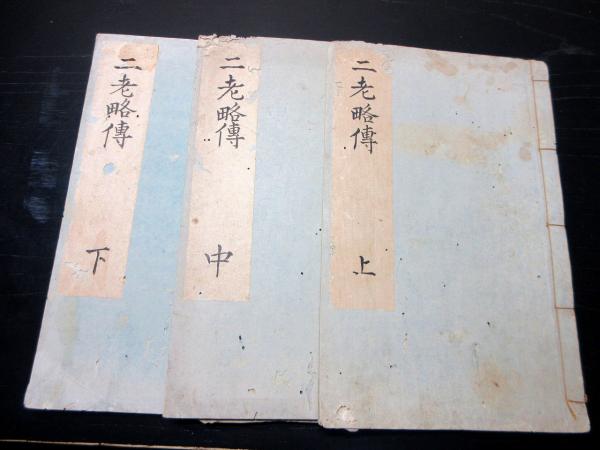 二老略傳
上
二老略傳
中
二老略傳
下